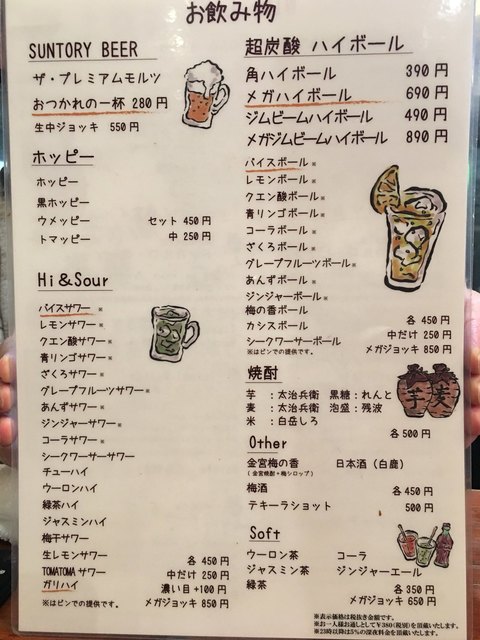 お飲み物
SUNTORY BEER
ザ・プレミアムモルツ
おつかれの一杯 280円
生中ジョッキ 550円
ホッピー
ホッピー
黒ホッピー
ウメッピー セット 450円
トマッピー 中 250円
Hi&Sour
バイスサワー ※
レモンサワー ※
クエン酸サワー ※
青リンゴサワー ※
ざくろサワー ※
グレープフルーツサワー ※
あんずサワー ※
ジンジャーサワー ※
コーラサワー ※
シークワーサーサワー
チューハイ
ウーロンハイ
緑茶ハイ
ジャスミンハイ
梅干サワー
生レモンサワー 各 450円
TOMATOMAサワー 中だけ 250円
ガリハイ 濃い目 +100円
※はビンでの提供です。 メガジョッキ 850円
超炭酸 ハイボール
角ハイボール 390円
メガハイボール 690円
ジムビームハイボール 490円
メガジムビームハイボール 890円
バイスボール ※
レモンボール ※
クエン酸ボール ※
青リンゴボール ※
コーラボール ※
ざくろボール ※
グレープフルーツボール ※
あんずボール ※
ジンジャーボール ※
梅の香ボール
カシスボール 各 450円
シークワーサーボール 中だけ 250円
※はビンでの提供です。 メガジョッキ 850円
焼酎
芋 :太治兵衛 黒糖:れんと
麦 :太治兵衛 泡盛:残波
米 :白岳しろ
各 500円
芋 麦
Other
金宮梅の香 日本酒(白鹿)
(金宮焼酎+梅シロップ)
梅酒 各 450円
テキーラショット 500円
Soft
ウーロン茶 コーラ
ジャスミン茶 ジンジャーエール
緑茶 各 350円
メガジョッキ 650円
※表示価格は税抜き金額です。
※お一人様お通しとして¥380(税別)を頂戴いたします。
※23時以降は5%の深夜料金を頂戴いたします。